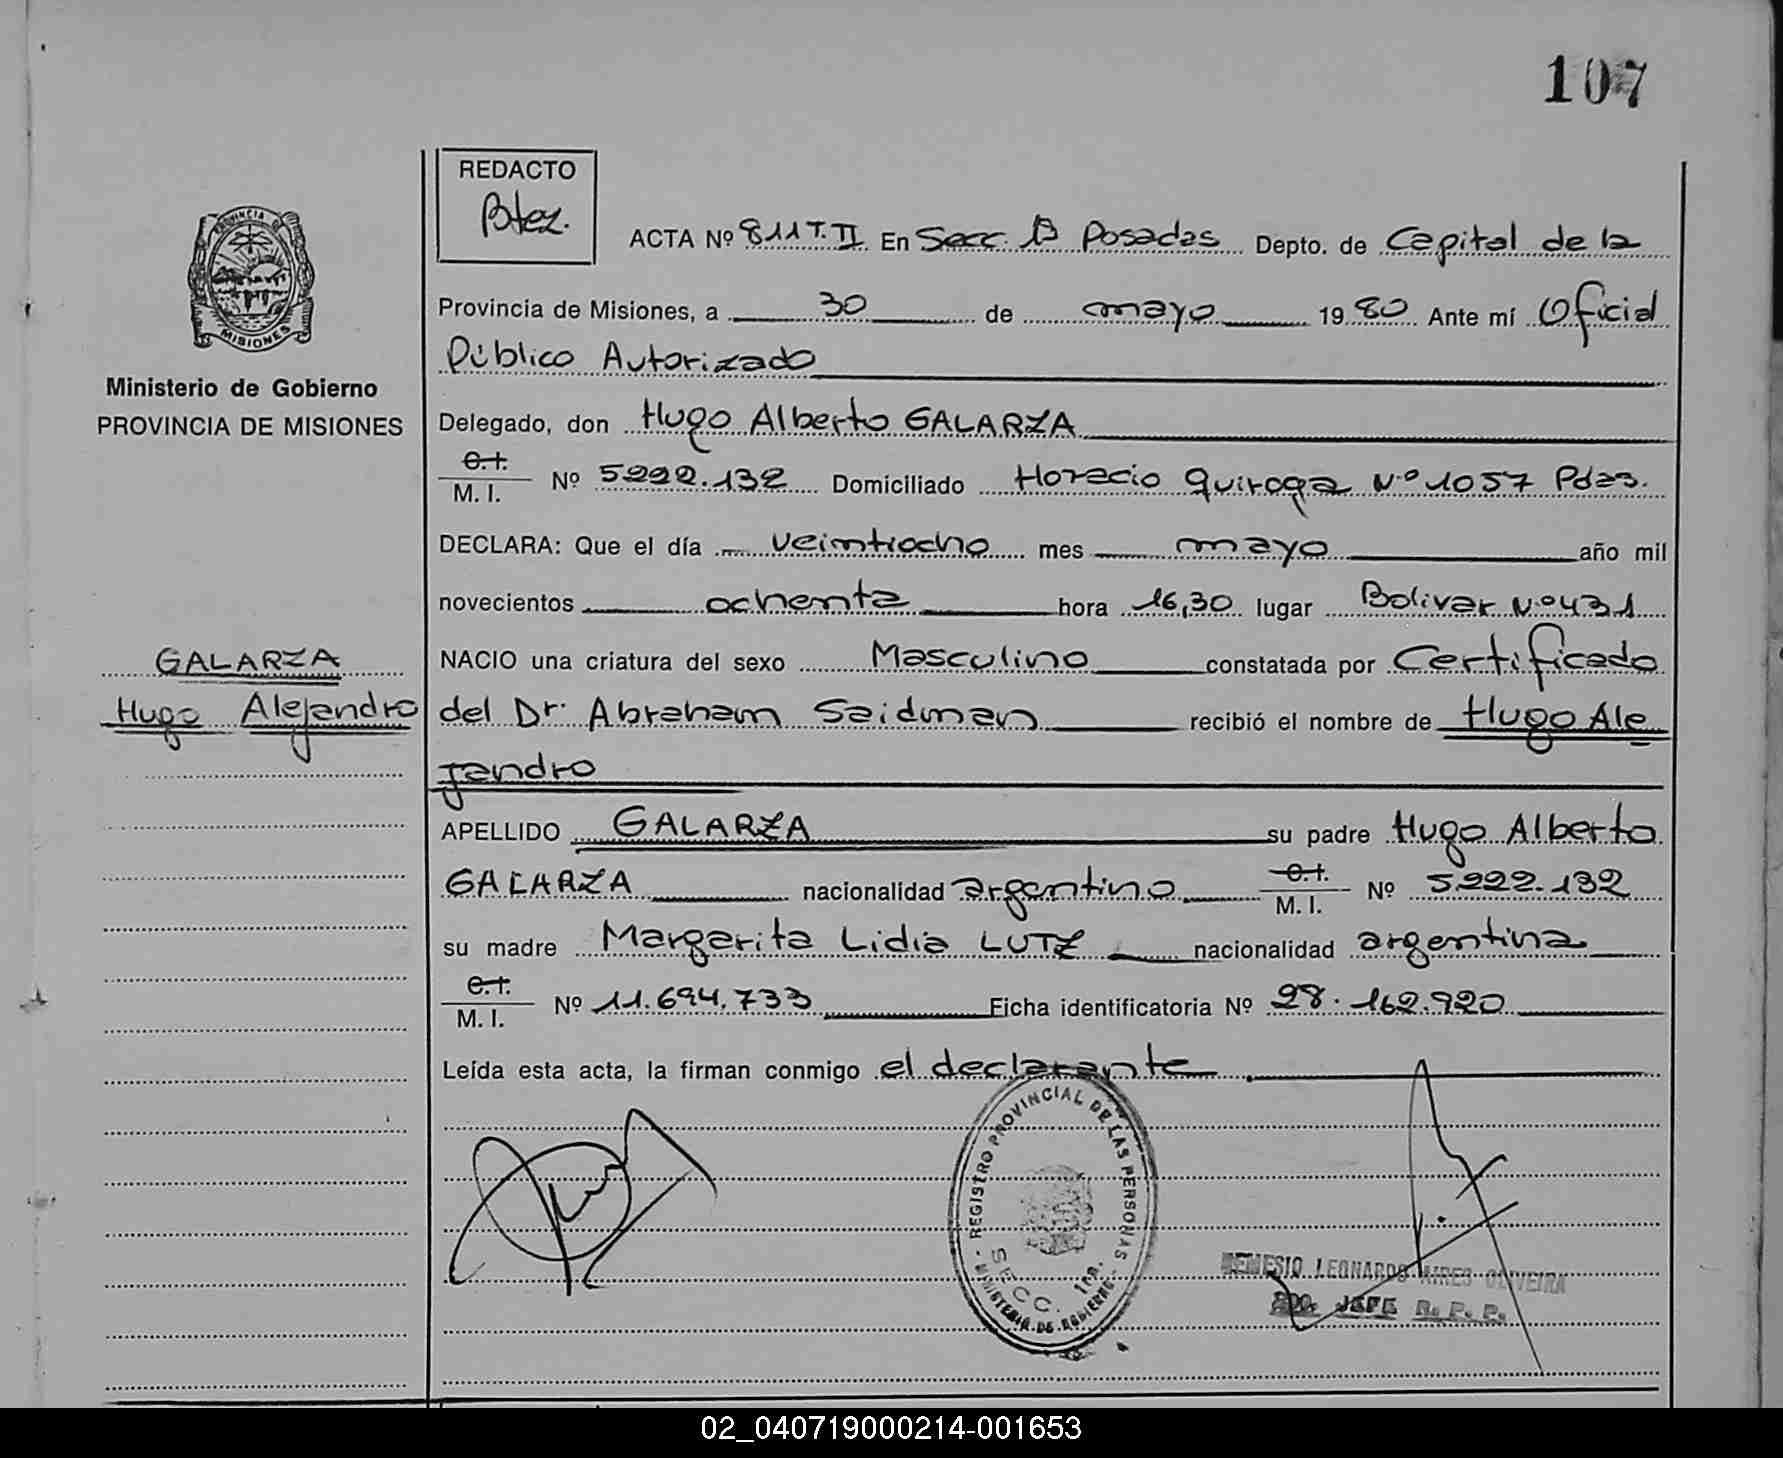 107
REDACTO
PROVINCIA DE
MISIONES
ACTA Nº 811 T. II En Secc. 1ª Posadas Depto. de Capital de la
Provincia de Misiones, a 30 de mayo 1980 Ante mí Oficial
Público Autorizado
Ministerio de Gobierno
PROVINCIA DE MISIONES
Delegado, don Hugo Alberto GALARZA
C.I.
M. I. Nº 5.222.132 Domiciliado Horacio Quiroga Nº 1057 Pdas.
DECLARA: Que el día veintiocho mes mayo año mil
novecientos ochenta hora 16,30 lugar Bolivar Nº 431
GALARZA
Hugo Alejandro
NACIO una criatura del sexo Masculino constatada por Certificado
del Dr. Abraham Saidman recibió el nombre de Hugo Ale
jandro
APELLIDO GALARZA su padre Hugo Alberto
GALARZA nacionalidad argentino C.I. M. I. Nº 5.222.132
su madre Margarita Lidia LUTZ nacionalidad argentina
C.I.
M. I. Nº 11.694.733 Ficha identificatoria Nº 28.162.920
Leída esta acta, la firman conmigo el declarante
REGISTRO PROVINCIAL DE LAS PERSONAS
SECC. 1ra.
MINISTERIO DE GOBIERNO
NEMESIO LEONARDO AIRES OLIVEIRA
JEFE R. P. P.
02_040719000214-001653